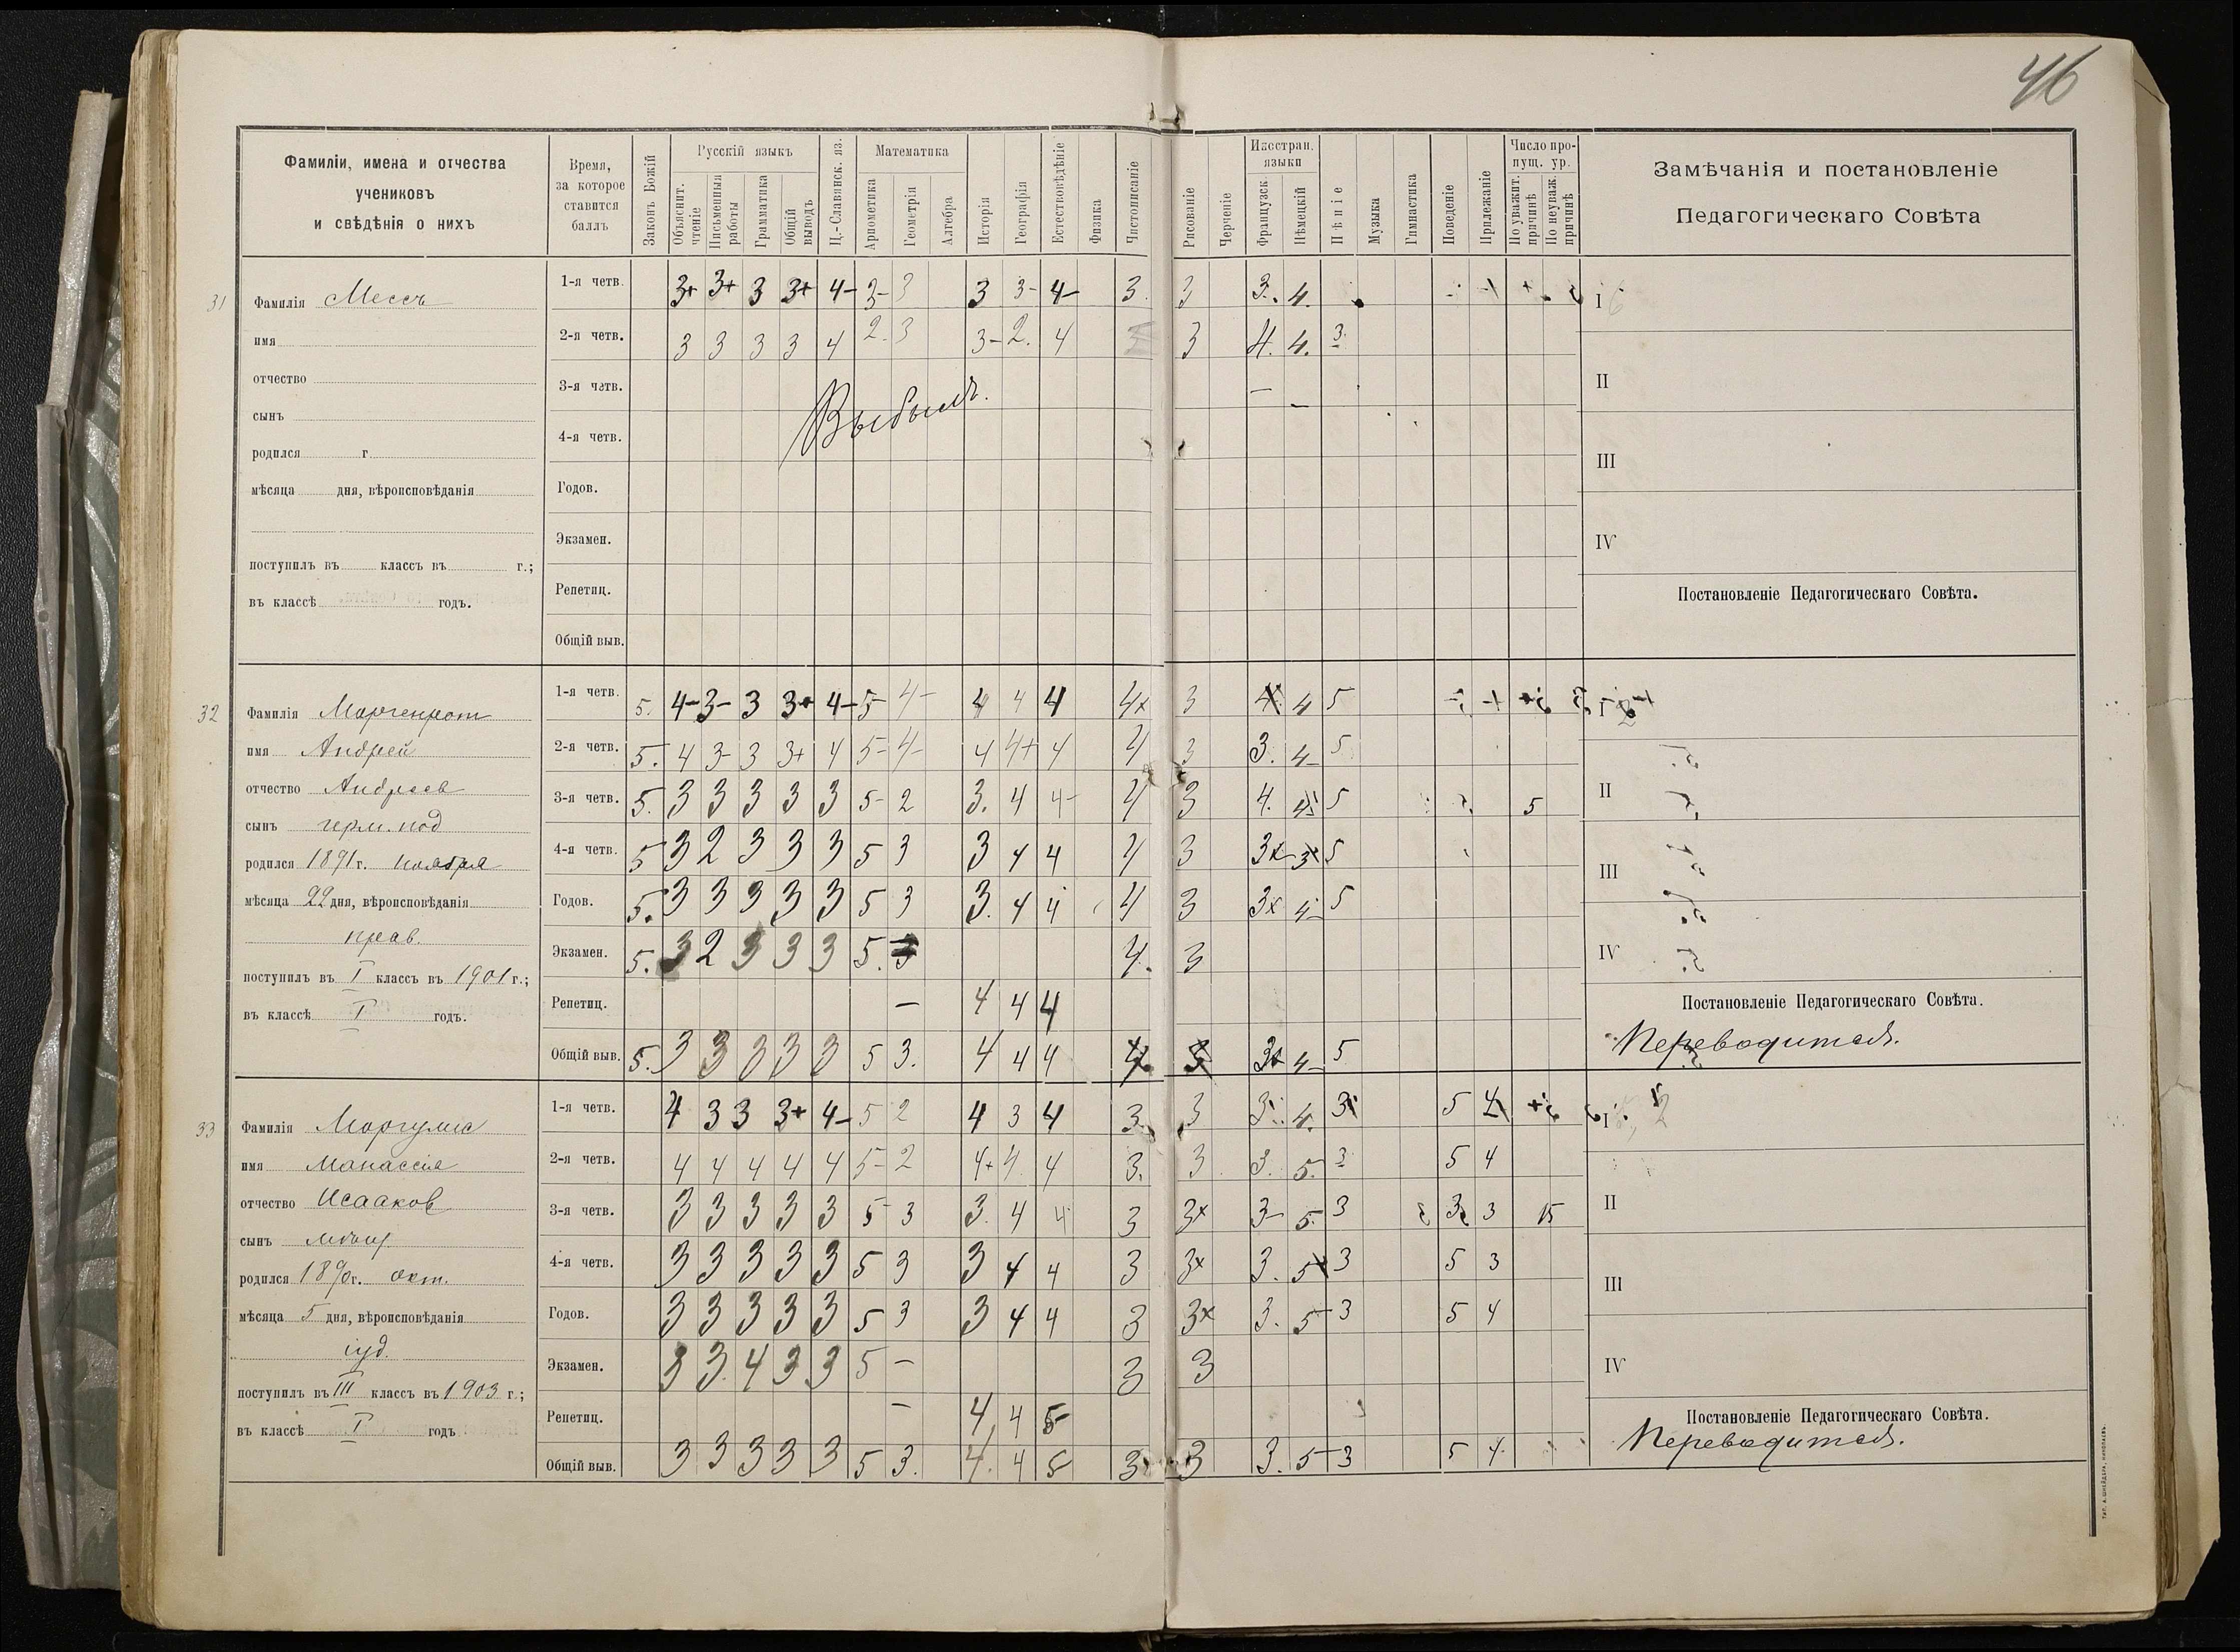 46
Фамиліи, имена и отчества
учениковъ
и свѣдѣнія о нихъ
Время,
за которое
ставится
баллъ
Законъ Божій
Русскій языкъ
Объяснит.
чтеніе
Письменныя
работы
Грамматика
Общій
выводъ
Ц.-Славянск. яз.
Математика
Ариѳметика
Геометрія
Алгебра
Исторія
Географія
Естествовѣдѣніе
Физика
Чистописаніе
Рисованіе
Черченіе
Иностран.
языки
Французск.
Нѣмецкій
Пѣніе
Музыка
Гимнастика
Поведеніе
Прилежаніе
Число про-
пущ. ур.
По уважит.
причинѣ
По неуваж.
причинѣ
Замѣчанія и постановленіе
Педагогическаго Совѣта
31
Фамилія Мессъ
имя
отчество
сынъ
родился г
мѣсяца дня, вѣроисповѣданія
поступилъ въ классъ въ г.;
въ классѣ годъ.
1-я четв. 3+ 3+ 3 3+ 4- 3- 3 3 3- 4- 3. 3 3. 4.
2-я четв. 3 3 3 3 4 2. 3 3- 2. 4 3 3 4. 4. 3
3-я четв.
Выбылъ.
4-я четв.
Годов.
Экзамен.
Репетиц.
Общій выв.
I
II
III
IV
Постановленіе Педагогическаго Совѣта.
32
Фамилія Моргенрот
имя Андрей
отчество Андреев
сынъ герм. под
родился 1891 г. ноября
мѣсяца 22 дня, вѣроисповѣданія
прав.
поступилъ въ I классъ въ 1901 г.;
въ классѣ I годъ.
1-я четв. 5. 4- 3- 3 3+ 4- 5- 4- 4 4 4 4x 3 4 4 5
2-я четв. 5. 4 3- 3 3+ 4 5- 4- 4 4+ 4 4 3 3. 4- 5
3-я четв. 5. 3 3 3 3 3 5- 2 3. 4 4- 4 3 4. 4 5 5
4-я четв. 5 3 2 3 3 3 5 3 3 4 4 4 3 3x 3 5
Годов. 5. 3 3 3 3 3 5 3 3. 4 4 4 3 3x 4- 5
Экзамен. 5. 3 2 3 3 3 5. 3 4. 3
Репетиц. — 4 4 4
Общій выв. 5. 3 3 3 3 3 5 3. 4 4 4 4 3 3x 4- 5
I
II
III
IV
Постановленіе Педагогическаго Совѣта.
Переводится.
33
Фамилія Моргулис
имя Манассия
отчество Исааков
сынъ мѣщ.
родился 1890 г. окт.
мѣсяца 5 дня, вѣроисповѣданія
іуд.
поступилъ въ III классъ въ 1903 г.;
въ классѣ I годъ
1-я четв. 4 3 3 3+ 4- 5 2 4 3 4 3. 3 3. 4. 3 5 4
2-я четв. 4 4 4 4 4 5- 2 4+ 4. 4 3. 3 3. 5. 3 5 4
3-я четв. 3 3 3 3 3 5- 3 3. 4 4 3 3x 3- 5. 3 3 3 15
4-я четв. 3 3 3 3 3 5 3 3 4 4 3 3x 3. 5 3 5 3
Годов. 3 3 3 3 3 5 3 3 4 4 3 3x 3. 5- 3 5 4
Экзамен. 3 3. 4 3 3 5 — 3 3
Репетиц. — 4 4 5
Общій выв. 3 3 3 3 3 5 3. 4. 4 5 3 3 3. 5- 3 5 4.
I
II
III
IV
Постановленіе Педагогическаго Совѣта.
Переводится.
ТИП. А. ШНЕЙДЕРА, НИКОЛАЕВЪ.